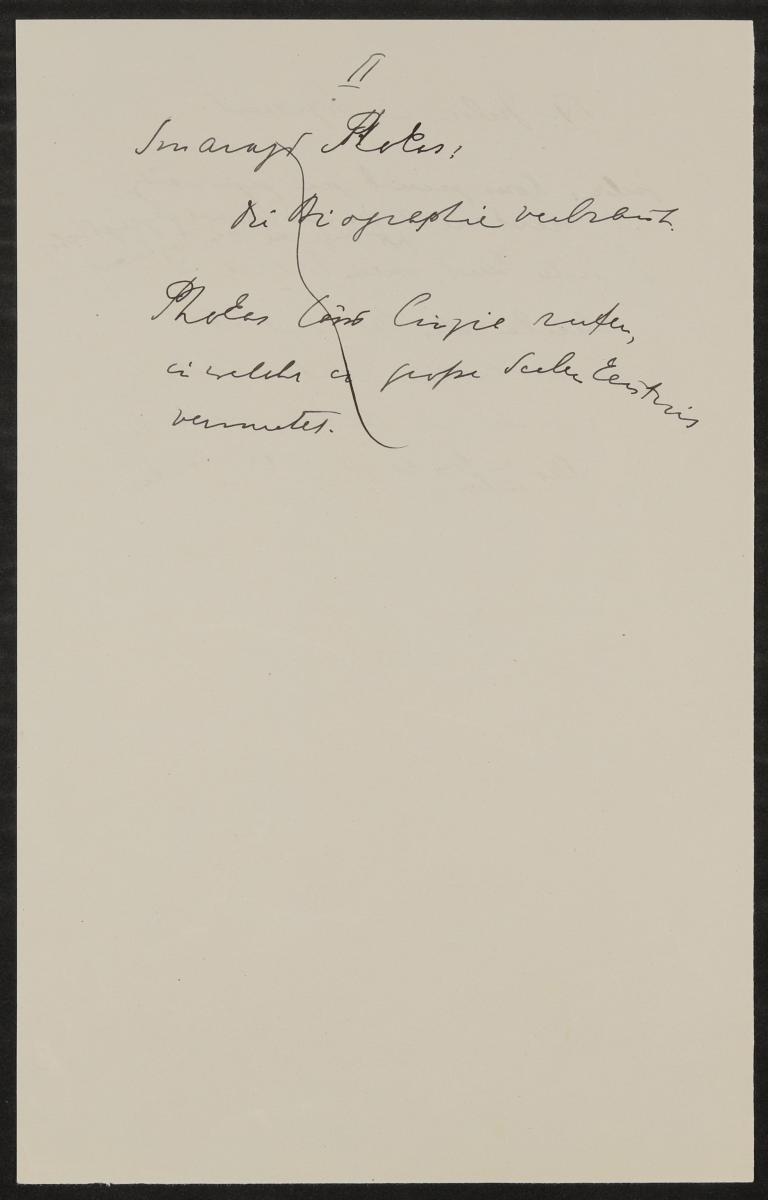 II
Smaragd Phokas:
die Biographie verbrannt.
Phokas lässt Cinzie rufen,
in welcher er große Seelenkenntnis
vermutet.